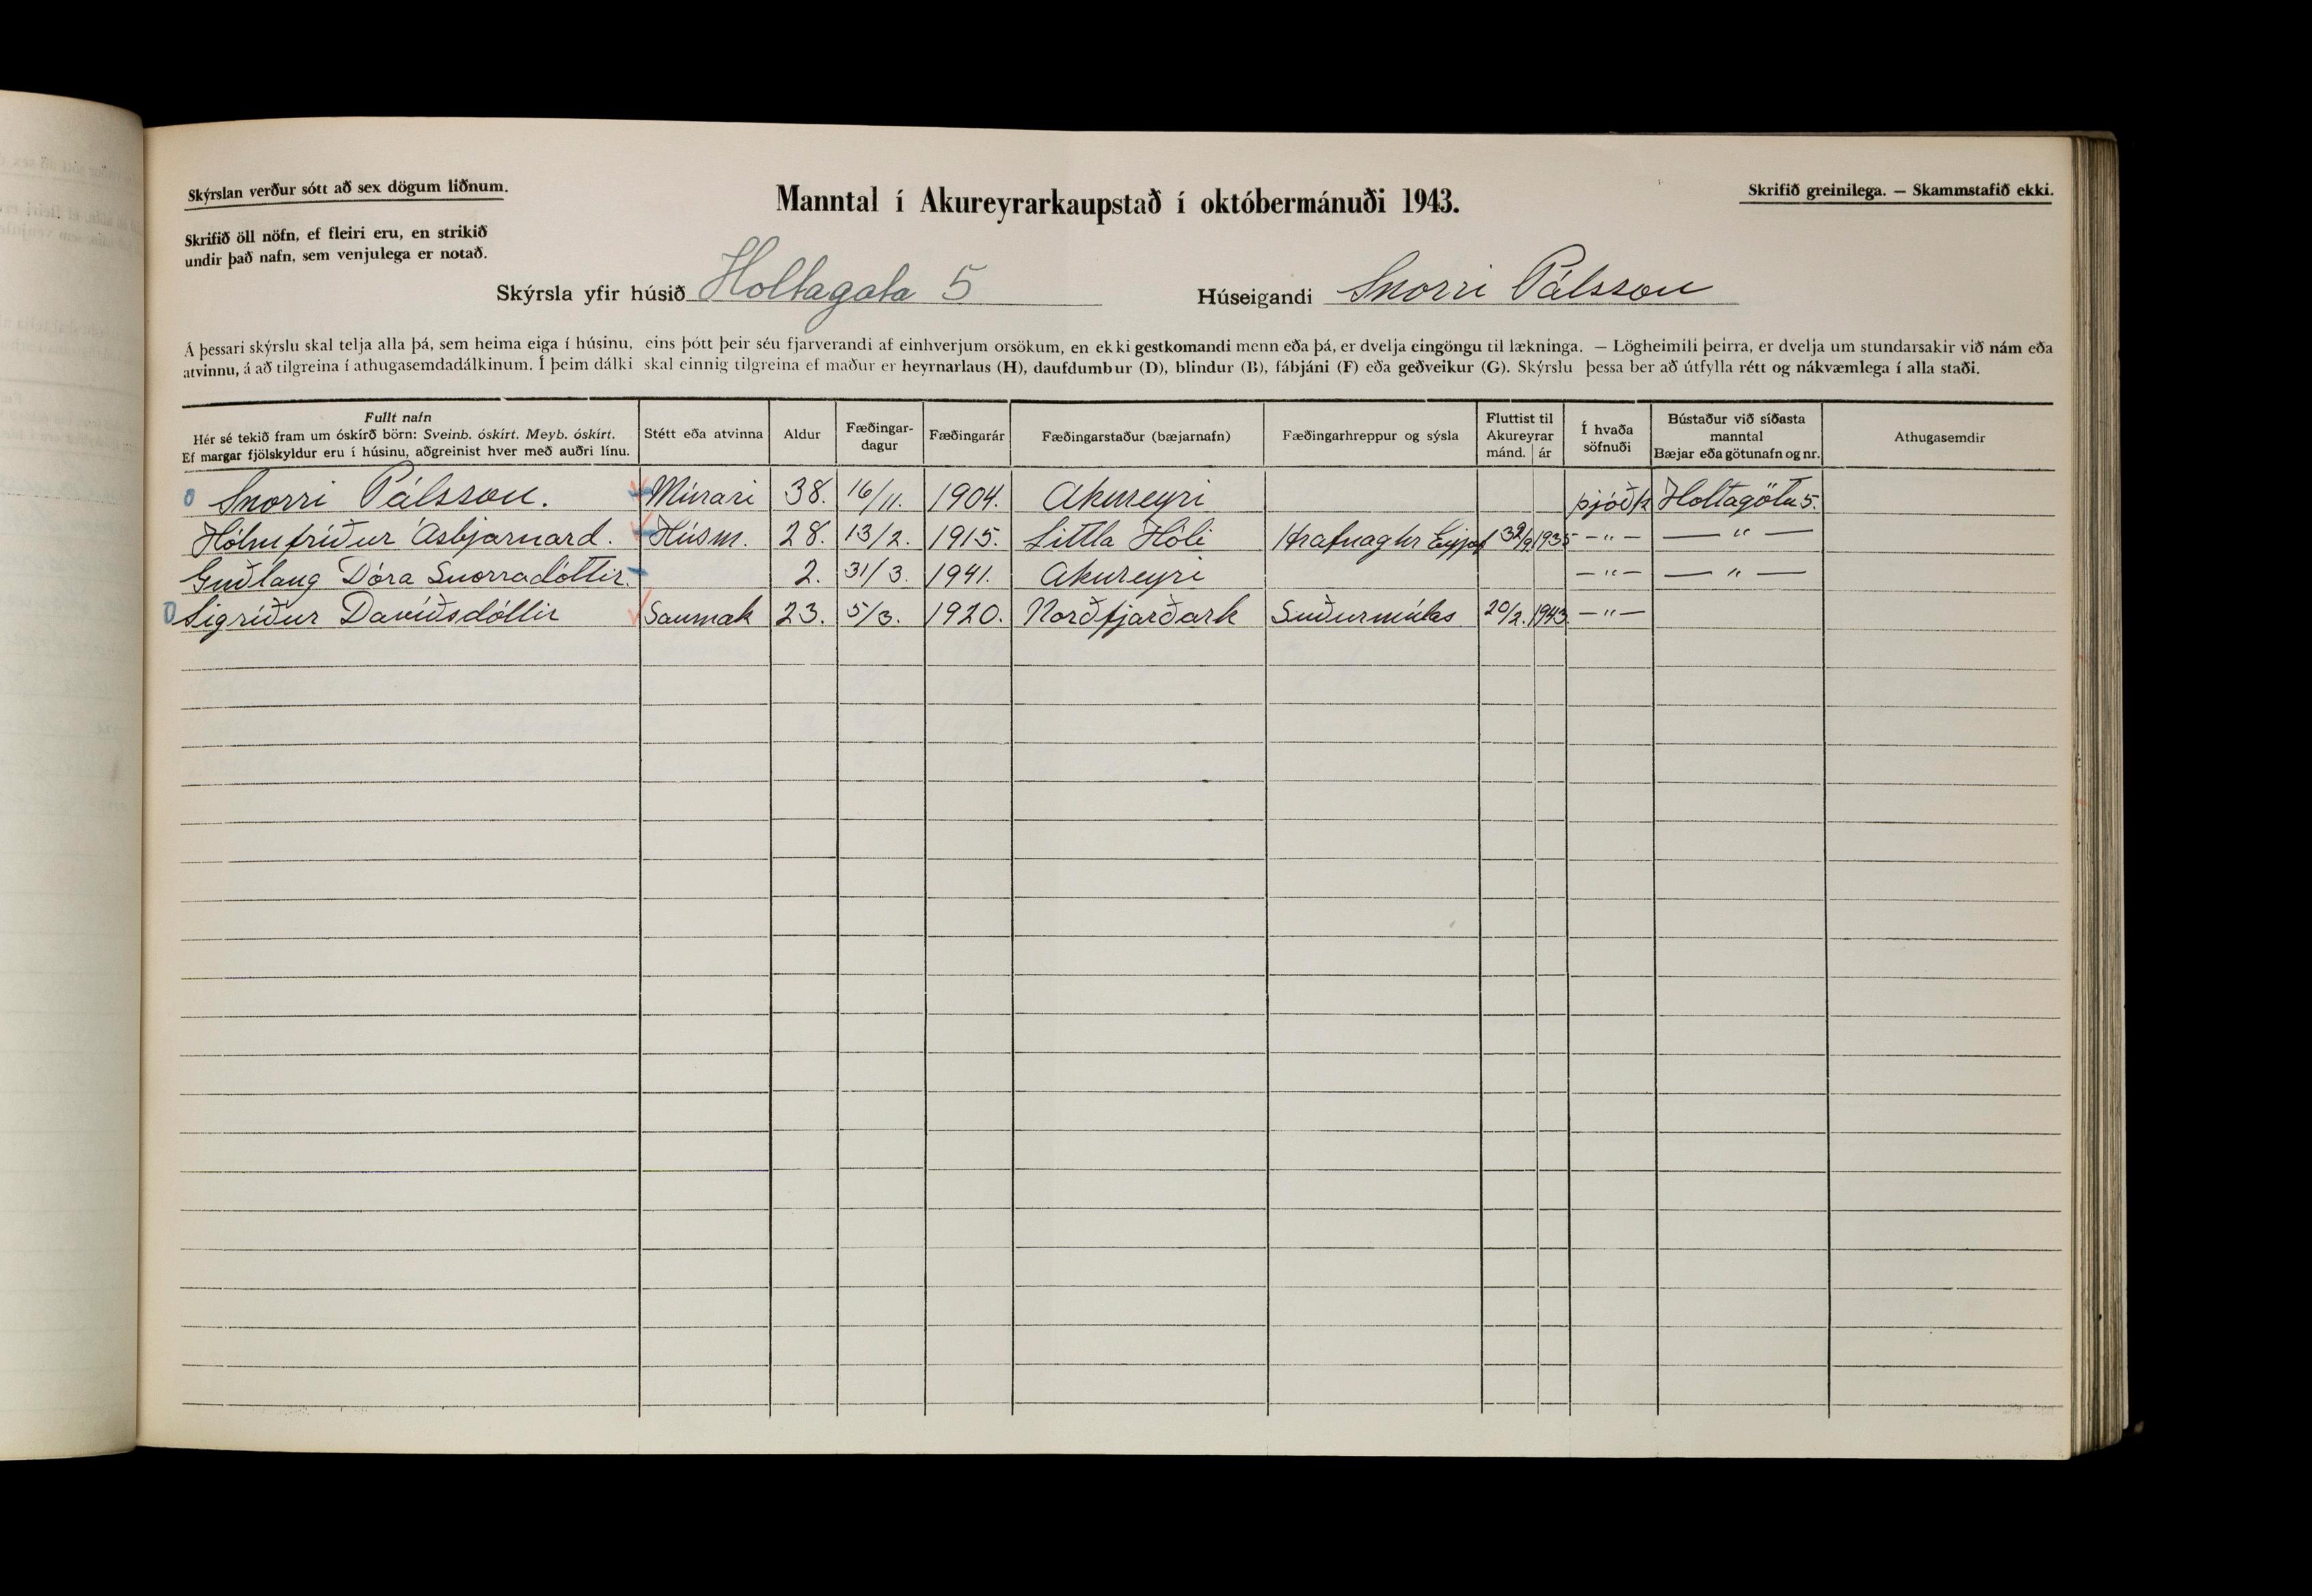 Skýrslan verður sótt að sex dögum liðnum.
Manntal í Akureyrarkaupstað í októbermánuði 1943.
Skrifið greinilega. — Skammstafið ekki.
Skrifið öll nöfn, ef fleiri eru, en strikið
undir það nafn, sem venjulega er notað.
Skýrsla yfir húsið Holtagata 5 Húseigandi Snorri Pálsson
Á þessari skýrslu skal telja alla þá, sem heima eiga í húsinu, eins þótt þeir séu fjarverandi af einhverjum orsökum, en ekki gestkomandi menn eða þá, er dvelja eingöngu til lækninga. — Lögheimili þeirra, er dvelja um stundarsakir við nám eða
atvinnu, á að tilgreina í athugasemdadálkinum. Í þeim dálki skal einnig tilgreina ef maður er heyrnarlaus (H), daufdumbur (D), blindur (B), fábjáni (F) eða geðveikur (G). Skýrslu þessa ber að útfylla rétt og nákvæmlega í alla staði.
Fullt nafn
Hér sé tekið fram um óskírð börn: Sveinb. óskírt. Meyb. óskírt.
Ef margar fjölskyldur eru í húsinu, aðgreinist hver með auðri línu.
Stétt eða atvinna
Aldur
Fæðingar-
dagur
Fæðingarár
Fæðingarstaður (bæjarnafn)
Fæðingarhreppur og sýsla
Fluttist til
Akureyrar
mánd. ár
Í hvaða
söfnuði
Bústaður við síðasta
manntal
Bæjar eða götunafn og nr.
Athugasemdir
Snorri Pálsson. Múrari 38. 16/11. 1904. Akureyri þjóðk Holtagötu 5.
Hólmfríður Ásbjarnard. Húsm. 28. 13/2. 1915. Littla Hóli Hrafnaghr Eyjaf 1935 —"— —"—
Guðlaug Dóra Snorradóttir. 2. 31/3. 1941. Akureyri —"— —"—
Sigríður Davíðsdóttir Saumak 23. 5/3. 1920. Norðfjarðark Suðurmúlas 20/2. 1943. —"—